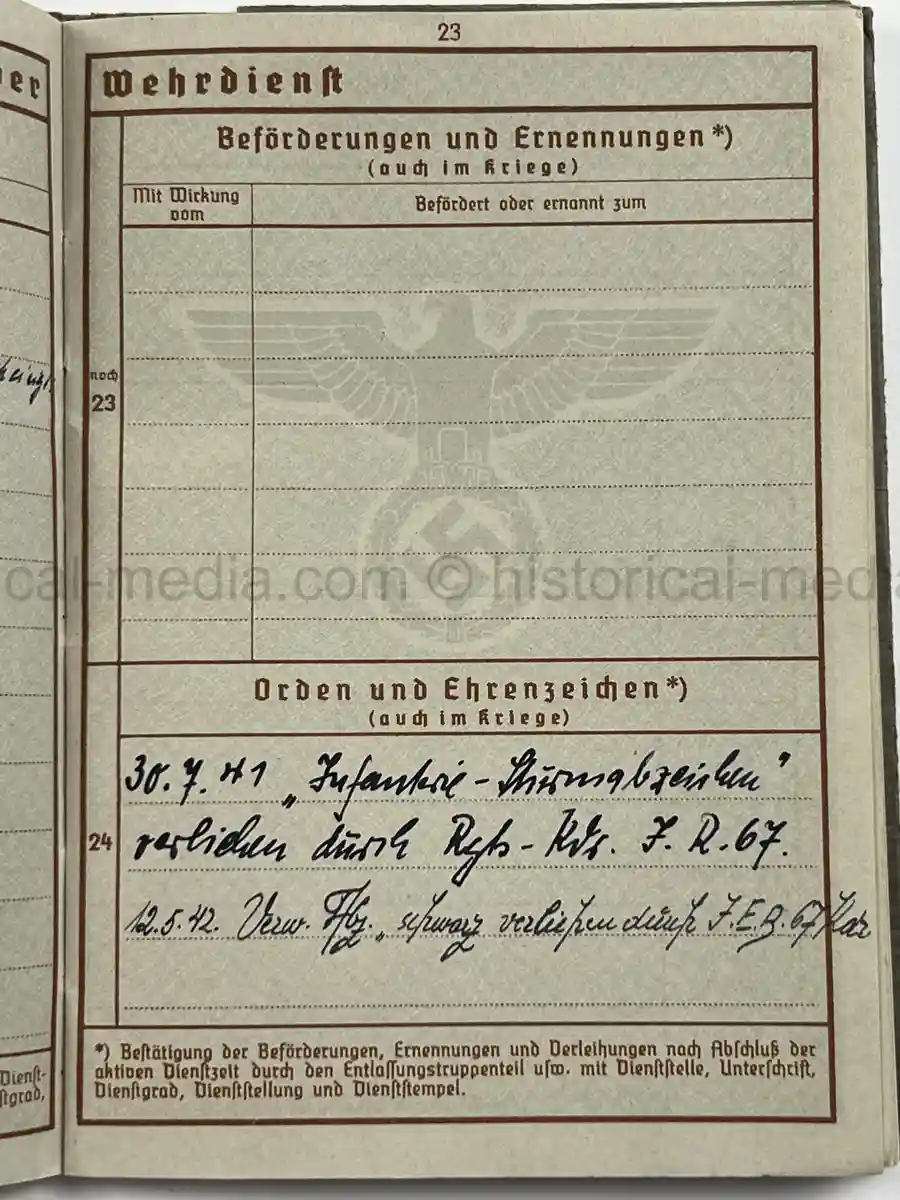 23
er
Wehrdienst
Beförderungen und Ernennungen*)
(auch im Kriege)
Mit Wirkung
vom
Befördert oder ernannt zum
noch
23
cal-media.com © historical-med
Orden und Ehrenzeichen*)
(auch im Kriege)
30.7.41 „Infanterie-Sturmabzeichen"
24
verliehen durch Rgts-Kdr. I.R.67.
12.5.42. Verw. Abz. „schwarz verliehen durch I.E.B. 67
*) Bestätigung der Beförderungen, Ernennungen und Verleihungen nach Abschluß der
aktiven Dienstzeit durch den Entlassungstruppenteil usw. mit Dienststelle, Unterschrift,
Dienstgrad, Dienststellung und Dienststempel.
Dienst-
stgrad,